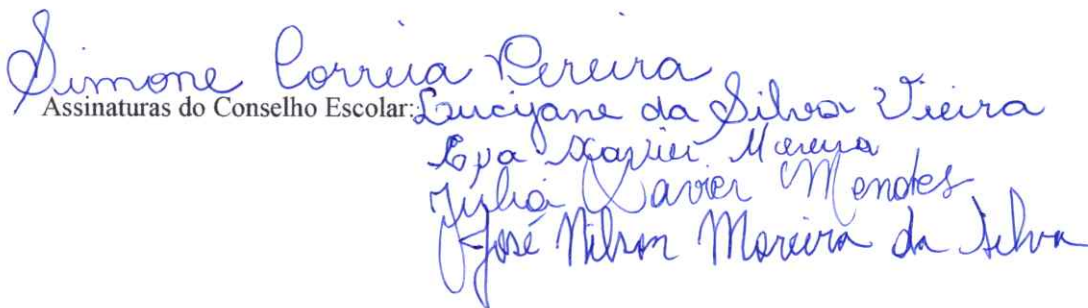 Simone Correia Pereira
Assinaturas do Conselho Escolar: Lucijane da Silva Vieira
Eva Xavier Moreira
Julia Xavier Mendes
José Nilson Moreira da Silva